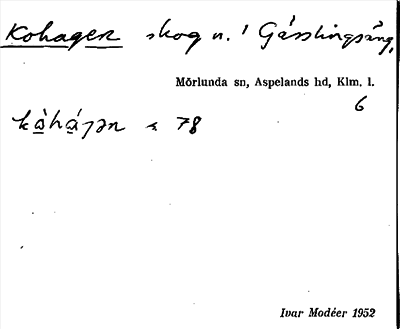 Kohagen skog n. Gässlingsäng,
Mörlunda sn, Aspelands hd, Klm. l.
6
78
Ivar Modéer 1952